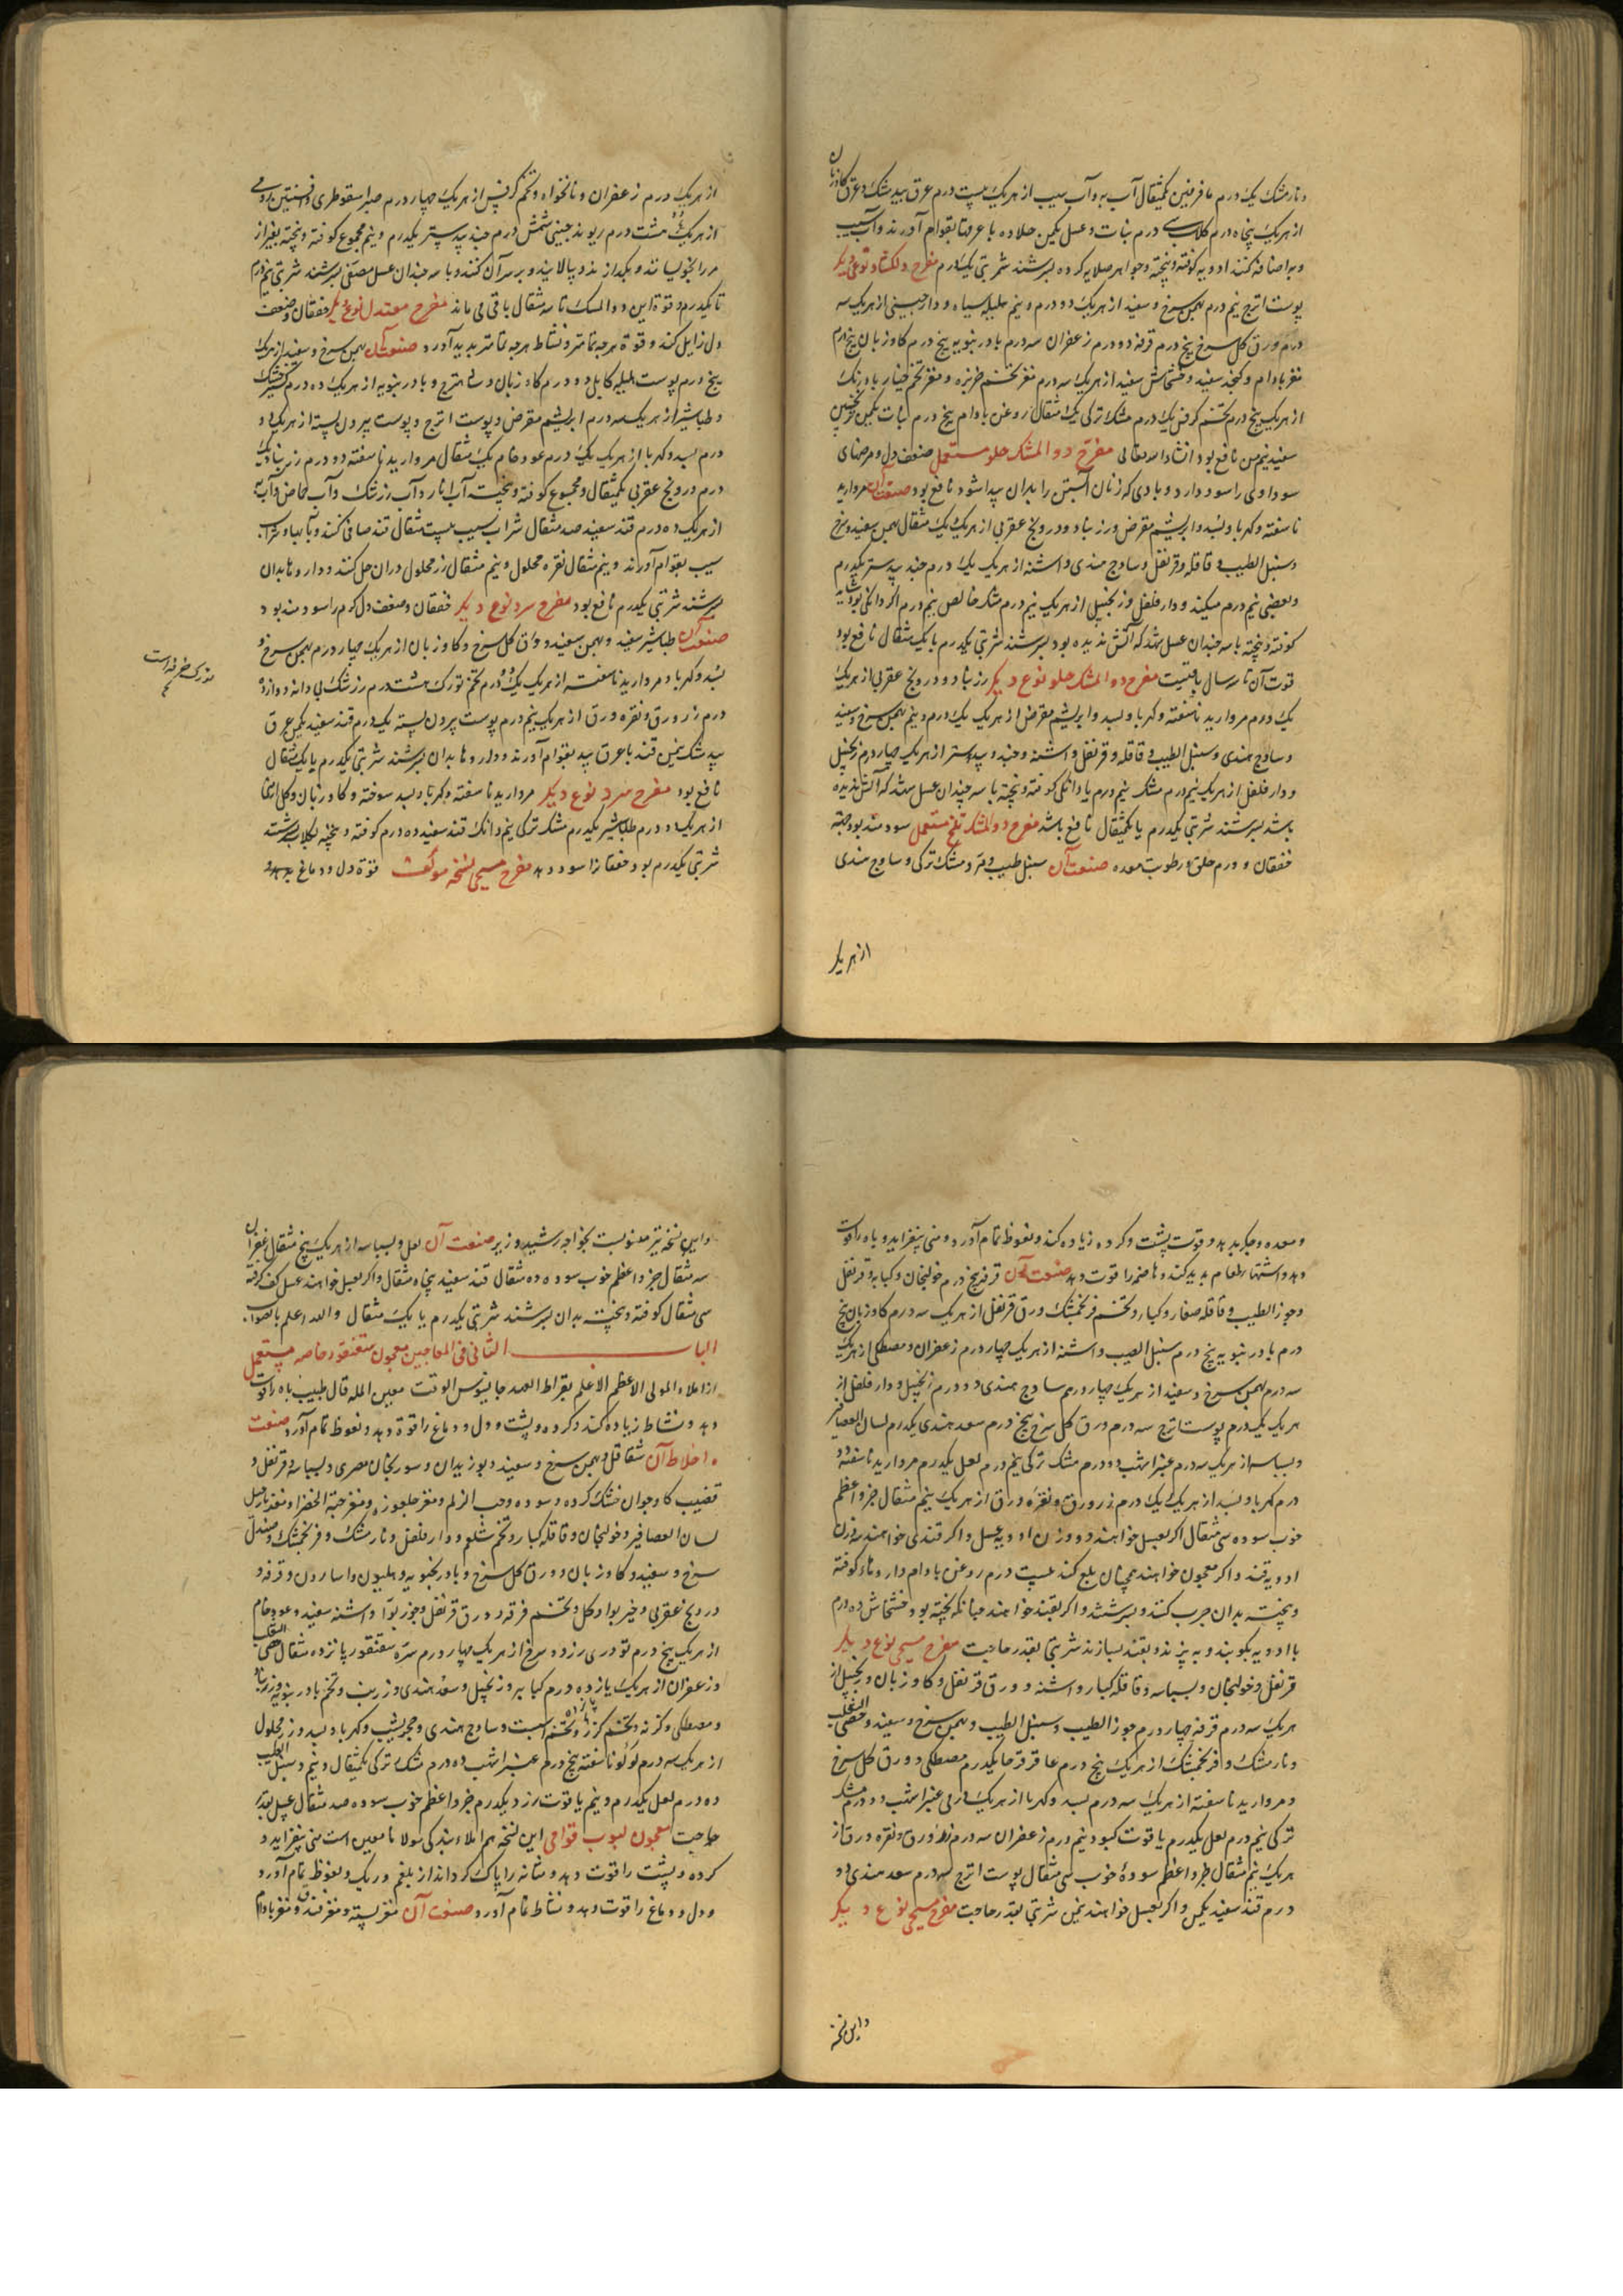 و نارمشک یک درم عاقرقرحا یکمثقال آب به و آب سیب از هر یک بیست درم عرق بیدمشک و عرق کاوزبان
از هر یک پنجاه درم کلاب سی درم نبات و عسل یکمن جلاده با عرقها بقوام آورند و آب سیب
و به اضافه کنند ادویه کوفته و بیخته و جواهر صلایه کرده بسرشند شربتی یکدرم مفرح دلکشاد نوعی دیکر
پوست اترج نیم درم بهمن سرخ و سفید از هر یک دو درم و نیم هلیله سیاه و دارچینی از هر یک سه
درم ورق کل سرخ پنج درم قرفه دو درم زعفران سه درم بادرنبویه پنج درم کاوزبان پنج درم
مغز بادام و کنجد سفید و خشخاش سفید از هر یک سه درم مغز تخم خربزه و مغز تخم خیار بادرنک
از هر یک پنج درم تخم کرفس یک درم مشک ترکی یک مثقال روغن بادام پنج درم نبات یکمن ترنجبین
سفید نیم من نافع بود انشاء الله تعالی مفرح دوالمشک حلو مستعمل ضعف دل و مرضهای
سوداوی را سود دارد و بادی که زنان آبستن را بدان پیدا شود نافع بود صنعت آن مروارید
ناسفته و کهربا و بسد و ابریشم مقرض و زرنباد و درونج عقربی از هر یک یک مثقال بهمن سفید و سرخ
و سنبل الطیب و قاقله و قرنفل و ساذج هندی و اشنه از هر یک یک درم جندبیدستر یکدرم
و بعضی نیم درم میکنند و دارفلفل و زنجبیل از هر یک نیم درم مشک خالص نیم درم اکر دانکی بود شاید
کوفته و بیخته با سه چندان عسل شهد که آتش ندیده بود بسرشند شربتی یکدرم یا یک مثقال نافع بود
قوت آن تا سه سال باقیست مفرح دوالمشک حلو نوع دیکر زرنباد و درونج عقربی از هر یک
یک درم مروارید ناسفته و کهربا و بسد و ابریشم مقرض از هر یک یک درم و نیم بهمن سرخ و سفید
و ساذج هندی و سنبل الطیب و قاقله و قرنفل و اشنه و جندبیدستر از هر یک چهار درم زنجبیل
و دارفلفل از هر یک نیم درم مشک نیم درم یا دانکی کوفته و بیخته با سه چندان عسل شهد که آتش ندیده
باشد بسرشند شربتی یکدرم یا یکمثقال نافع باشد مفرح دوالمشک تلخ مستعمل سودمند بود جهة
خفقان و ورم حلق و رطوبت معده صنعت آن سنبل طیب و مر و مشک ترکی و ساذج هندی
از هر یک
از هر یک درم زعفران و نانخواه و تخم کرفس از هر یک چهار درم صبر اسقوطری و افسنتین رومی
از هر یک هشت درم ریوند چینی شش درم جندبیدستر یکدرم و نیم مجموع کوفته و بیخته بغیر از
مر را بخویسانند و بکدازند و بپالایند و بر سر آن کنند و با سه چندان عسل مصفی بسرشند شربتی نیم درم
تا یکدرم و قوة این دوالمسک تا سه مثقال باقی می ماند مفرح معتدل نوع دیکر خفقان و ضعف
دل زایل کند و قوة هر چه تمامتر و نشاط هر چه تمامتر پدید آورد صنعت آن بهمن سرخ و سفید از هر یک
پنج درم پوست هلیله کابلی دو درم کاوزبان و اترج و بادرنبویه از هر یک ده درم کشنیز خشک
و طباشیر از هر یک سه درم ابریشم مقرض و پوست اترج و پوست بیرون پسته از هر یک دو
درم بسد و کهربا از هر یک یک درم عود خام یک مثقال مروارید ناسفته دو درم زرنباد یک
درم درونج عقربی یکمثقال و مجموع کوفته و بیخته آب انار و آب زرشک و آب حماض و آب به
از هر یک ده درم قند سفید صد مثقال شراب سیب بیست مثقال قند صافی کنند و با آبها و شراب
سیب بقوام آورند و نیم مثقال نقره محلول و نیم مثقال زر محلول در آن حل کنند و داروها بدان
بسرشند شربتی یکدرم نافع بود مفرح سرد نوع دیکر خفقان و ضعف دل کرم را سودمند بود
صنعت آن طباشیر سفید و بهمن سفید و ورق کل سرخ و کاوزبان از هر یک چهار درم بهمن سرخ و
بسد و کهربا و مروارید ناسفته از هر یک یک درم تخم تورک هشت درم زرشک بی دانه دوازده
درم زر ورق و نقره ورق از هر یک نیم درم پوست بیرون پسته یک درم قند سفید یکمن عرق
بیدمشک نیمن قند با عرق بید بقوام آورند و داروها بدان بسرشند شربتی یکدرم یا یک مثقال
نافع بود مفرح سرد نوع دیکر مروارید ناسفته و کهربا و بسد سوخته و کاوزبان و کل
از هر یک دو درم طباشیر یکدرم مشک ترکی نیم دانک قند سفید ده درم کوفته و بیخته بکلاب بسرشند
شربتی یکدرم بود خفقانرا سود دهد مفرح مسیحی نسخه مولف قوة دل و دماغ بدهد
و معده و جکر بدهد و قوت پشت و کرده زیاده کند و نعوظ تمام آورد و منی بیفزاید و باه را قوت
دهد و اشتهاء طعام پدید کند و هاضمه را قوت دهد صنعت آن قرفه پنج درم خولنجان و کبابه و قرنفل
و جوز الطیب و قاقله صغار و کبار و تخم فرنجمشک و ورق قرنفل از هر یک سه درم کاوزبان پنج
درم بادرنبویه پنج درم سنبل الطیب و اشنه از هر یک چهار درم زعفران و مصطکی از هر یک
سه درم بهمن سرخ و سفید از هر یک چهار درم ساذج هندی دو درم زنجبیل و دارفلفل از
هر یک یکدرم پوست اترج سه درم ورق کل سرخ پنج درم سعد هندی یکدرم لسان العصافیر
و بسباسه از هر یک سه درم عنبر اشهب دو درم مشک ترکی نیم درم لعل یکدرم مروارید ناسفته دو
درم کهربا و بسد از هر یک یک درم زر ورق و نقره ورق از هر یک نیم مثقال جزو اعظم
خوب سوده سی مثقال اکر بعسل خواهند دو وزن ادویه عسل و اکر قندی خواهند سه وزن
ادویه قند و اکر معجون خواهند همچنان بلع کند بیست درم روغن بادام داروهاء کوفته
و بیخته بدان چرب کنند و بسرشند و اکر بقند خواهند چنانکه پخته بود خشخاش ده درم
با ادویه بکوبند و به پزند و بقند بسازند شربتی بقدر حاجت مفرح مسیحی نوع دیکر
قرنفل و خولنجان و بسباسه و قاقله کبار و اشنه و ورق قرنفل و کاوزبان و زنجبیل از
هر یک سه درم قرفه چهار درم جوز الطیب و سنبل الطیب و بهمن سرخ و سفید و خصی الثعلب
و نارمشک و فرنجمشک از هر یک پنج درم عاقرقرحا یکدرم مصطکی و ورق کل سرخ
و مروارید ناسفته از هر یک سه درم بسد و کهربا از هر یک درمی عنبر اشهب دو درم مشک
ترکی نیم درم لعل یکدرم یاقوت کبود نیم درم زعفران سه درم زر ورق و نقره ورق از
هر یک نیم مثقال جزو اعظم سودهٔ خوب سی مثقال پوست اترج سه درم سعد هندی دو
درم قند سفید یکمن و اکر بعسل خواهند نیمن شربتی بقدر حاجت مفرح مسیحی نوع دیکر
و این نسخه
و این نسخه نیز منسوبست بخواجه رشید وزیر صنعت آن لعل و بسباسه از هر یک پنج مثقال زعفران
سه مثقال جزو اعظم خوب سوده ده مثقال قند سفید پنجاه مثقال و اکر بعسل خواهند عسل کف کرفته
سی مثقال کوفته و بیخته بدان بسرشند شربتی یکدرم یا یک مثقال و الله اعلم بالصواب
الباب الثانی فی المعاجین معجون سقنقور خاصه مستعمل
از املاء المولی الاعظم الاعلم بقراط العهد جالینوس الوقت معین المله قال طبیب باه را قوت
دهد و نشاط زیاده کند و کرده و پشت و دل و دماغ را قوة دهد و نعوظ تمام آورد صنعت
و اخلاط آن شقاقل و بهمن سرخ و سفید و بوزیدان و سورنجان مصری و بسباسه و قرنفل و
قضیب کاو جوان خشک کرده و سوده و حب الزلم و مغز جلغوزه و مغز حبة الخضرا و مغز نارجیل
لسان العصافیر و خولنجان و قاقله کبار و تخم شلغم و دارفلفل و نارمشک و فرنجمشک و صندل
سرخ و سفید و کاوزبان و ورق کل سرخ و بادرنجبویه و هلیون و اسارون و قرفه و
درونج عقربی و خیربوا و کل و تخم خرفه و ورق قرنفل و جوز بوا و اشنه سفید و عود خام
از هر یک پنج درم تودری زرد و سرخ از هر یک چهار درم سره سقنقور پانزده مثقال خصی الثعلب
و زعفران از هر یک یازده درم کبابه و زنجبیل و سعد هندی و زرنب و تخم بادرنبویه و زرنباد
و مصطکی و کزنه و تخم کزر و تخم اسبست و ساذج هندی و حجر یشب و کهربا و بسد و زر محلول
از هر یک سه درم لؤلؤ ناسفته پنج درم عنبر اشهب ده درم مشک ترکی یکمثقال و نیم و سنبل الطیب
ده درم لعل یکدرم و نیم یاقوت زرد یکدرم جزو اعظم خوب سوده صد مثقال عسل بقدر
حاجت معجون لبوب قوامی این نسخه هم املاء بندکی مولانا معین است منی بیفزاید و
کرده و پشت را قوت دهد و مثانه را پاک کرداند از بلغم و ریک و نعوظ تمام آورد
و دل و دماغ را قوت دهد و نشاط تمام آورد صنعت آن مغز پسته و مغز فندق و مغز بادام